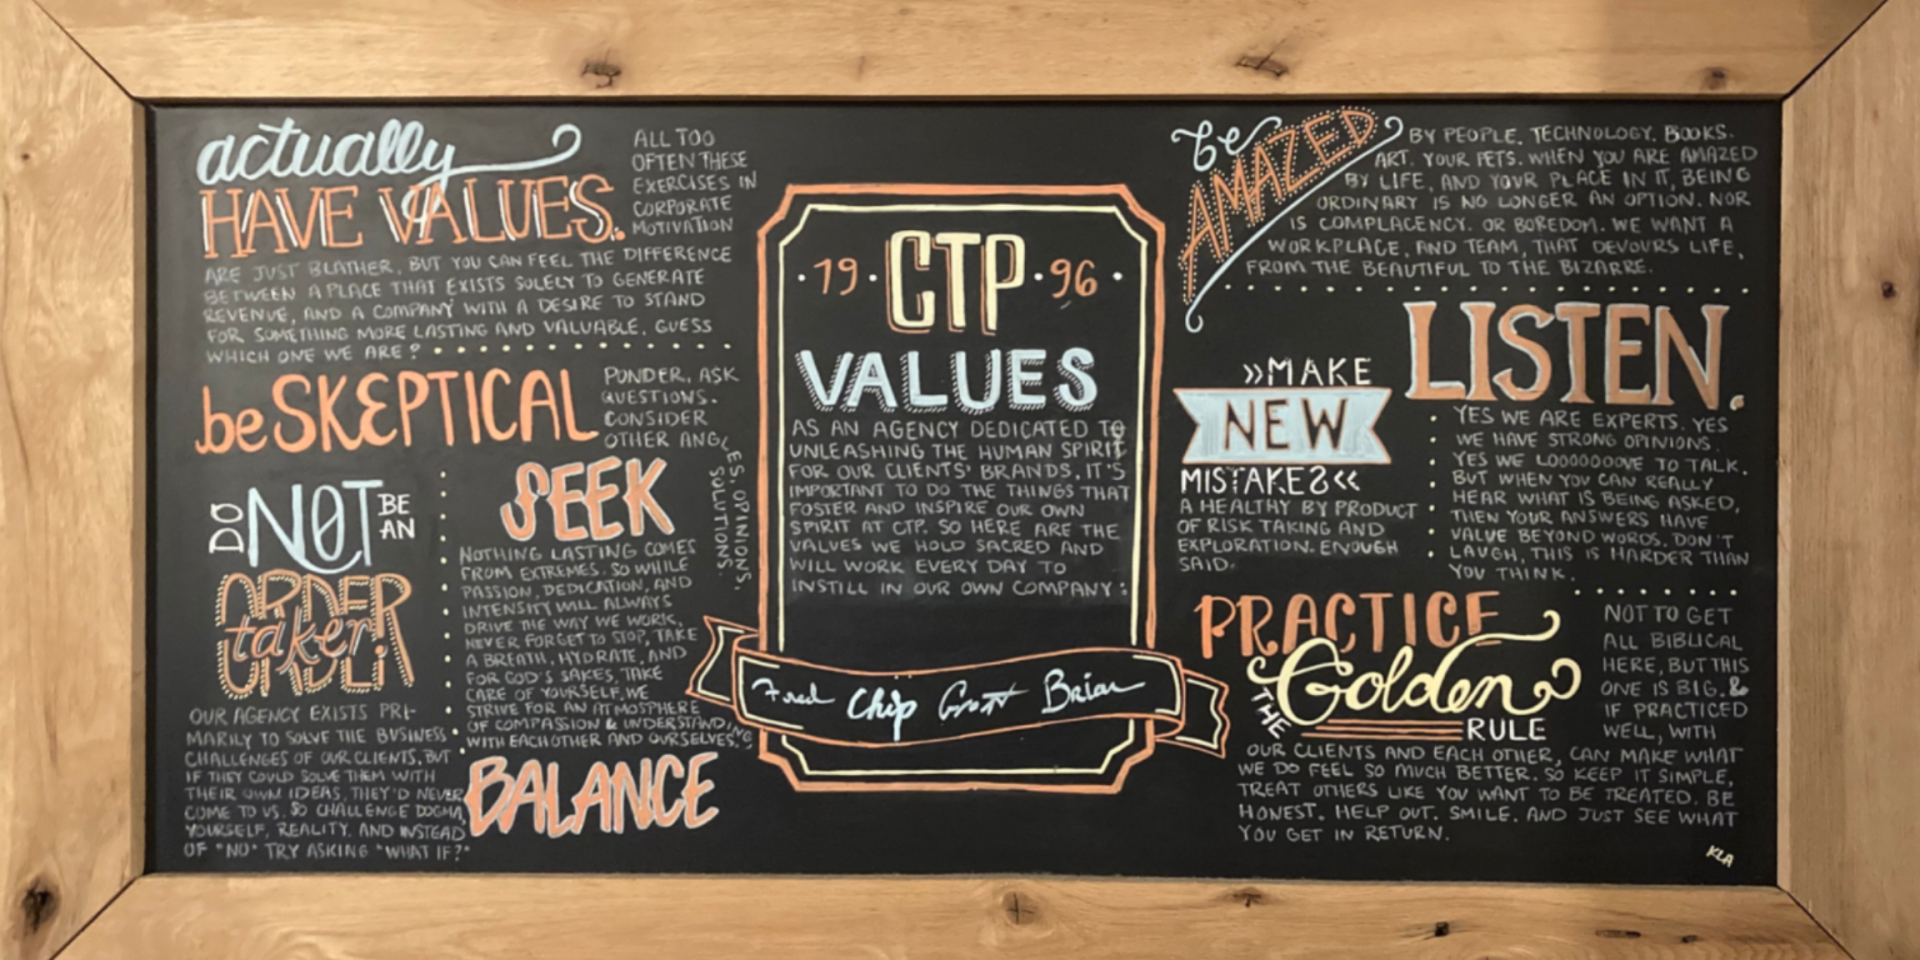 actually
HAVE VALUES.
ALL TOO
OFTEN THESE
EXERCISES IN
CORPORATE
MOTIVATION
ARE JUST BLATHER, BUT YOU CAN FEEL THE DIFFERENCE
BETWEEN A PLACE THAT EXISTS SOLELY TO GENERATE
REVENUE, AND A COMPANY WITH A DESIRE TO STAND
FOR SOMETHING MORE LASTING AND VALUABLE. GUESS
WHICH ONE WE ARE?
be SKEPTICAL
PONDER, ASK
QUESTIONS.
CONSIDER
OTHER ANGLES, OPINIONS,
SOLUTIONS.
DO NOT BE
AN
ORDER
taker!
OUR AGENCY EXISTS PRI-
MARILY TO SOLVE THE BUSINESS
CHALLENGES OF OUR CLIENTS, BUT
IF THEY COULD SOLVE THEM WITH
THEIR OWN IDEAS, THEY'D NEVER
COME TO US. SO CHALLENGE DOGMA,
YOURSELF, REALITY. AND INSTEAD
OF "NO" TRY ASKING "WHAT IF?"
SEEK
NOTHING LASTING COMES
FROM EXTREMES. SO WHILE
PASSION, DEDICATION, AND
INTENSITY WILL ALWAYS
DRIVE THE WAY WE WORK,
NEVER FORGET TO STOP, TAKE
A BREATH, HYDRATE, AND
FOR GOD'S SAKES, TAKE
CARE OF YOURSELF. WE
STRIVE FOR AN ATMOSPHERE
OF COMPASSION & UNDERSTANDING
WITH EACH OTHER AND OURSELVES.
BALANCE
19 CTP 96
VALUES
AS AN AGENCY DEDICATED TO
UNLEASHING THE HUMAN SPIRIT
FOR OUR CLIENTS' BRANDS, IT'S
IMPORTANT TO DO THE THINGS THAT
FOSTER AND INSPIRE OUR OWN
SPIRIT AT CTP. SO HERE ARE THE
VALUES WE HOLD SACRED AND
WILL WORK EVERY DAY TO
INSTILL IN OUR OWN COMPANY:
Fred Chip Grant Brian
be
AMAZED
BY PEOPLE. TECHNOLOGY. BOOKS.
ART. YOUR PETS. WHEN YOU ARE AMAZED
BY LIFE, AND YOUR PLACE IN IT, BEING
ORDINARY IS NO LONGER AN OPTION. NOR
IS COMPLACENCY. OR BOREDOM. WE WANT A
WORKPLACE, AND TEAM, THAT DEVOURS LIFE,
FROM THE BEAUTIFUL TO THE BIZARRE.
»MAKE
NEW
MISTAKES«
A HEALTHY BY PRODUCT
OF RISK TAKING AND
EXPLORATION. ENOUGH
SAID.
LISTEN.
YES WE ARE EXPERTS. YES
WE HAVE STRONG OPINIONS.
YES WE LOOOOOOVE TO TALK.
BUT WHEN YOU CAN REALLY
HEAR WHAT IS BEING ASKED,
THEN YOUR ANSWERS HAVE
VALUE BEYOND WORDS. DON'T
LAUGH, THIS IS HARDER THAN
YOU THINK.
PRACTICE
THE Golden
RULE
NOT TO GET
ALL BIBLICAL
HERE, BUT THIS
ONE IS BIG. &
IF PRACTICED
WELL, WITH
OUR CLIENTS AND EACH OTHER, CAN MAKE WHAT
WE DO FEEL SO MUCH BETTER. SO KEEP IT SIMPLE,
TREAT OTHERS LIKE YOU WANT TO BE TREATED. BE
HONEST. HELP OUT. SMILE. AND JUST SEE WHAT
YOU GET IN RETURN.
KLA